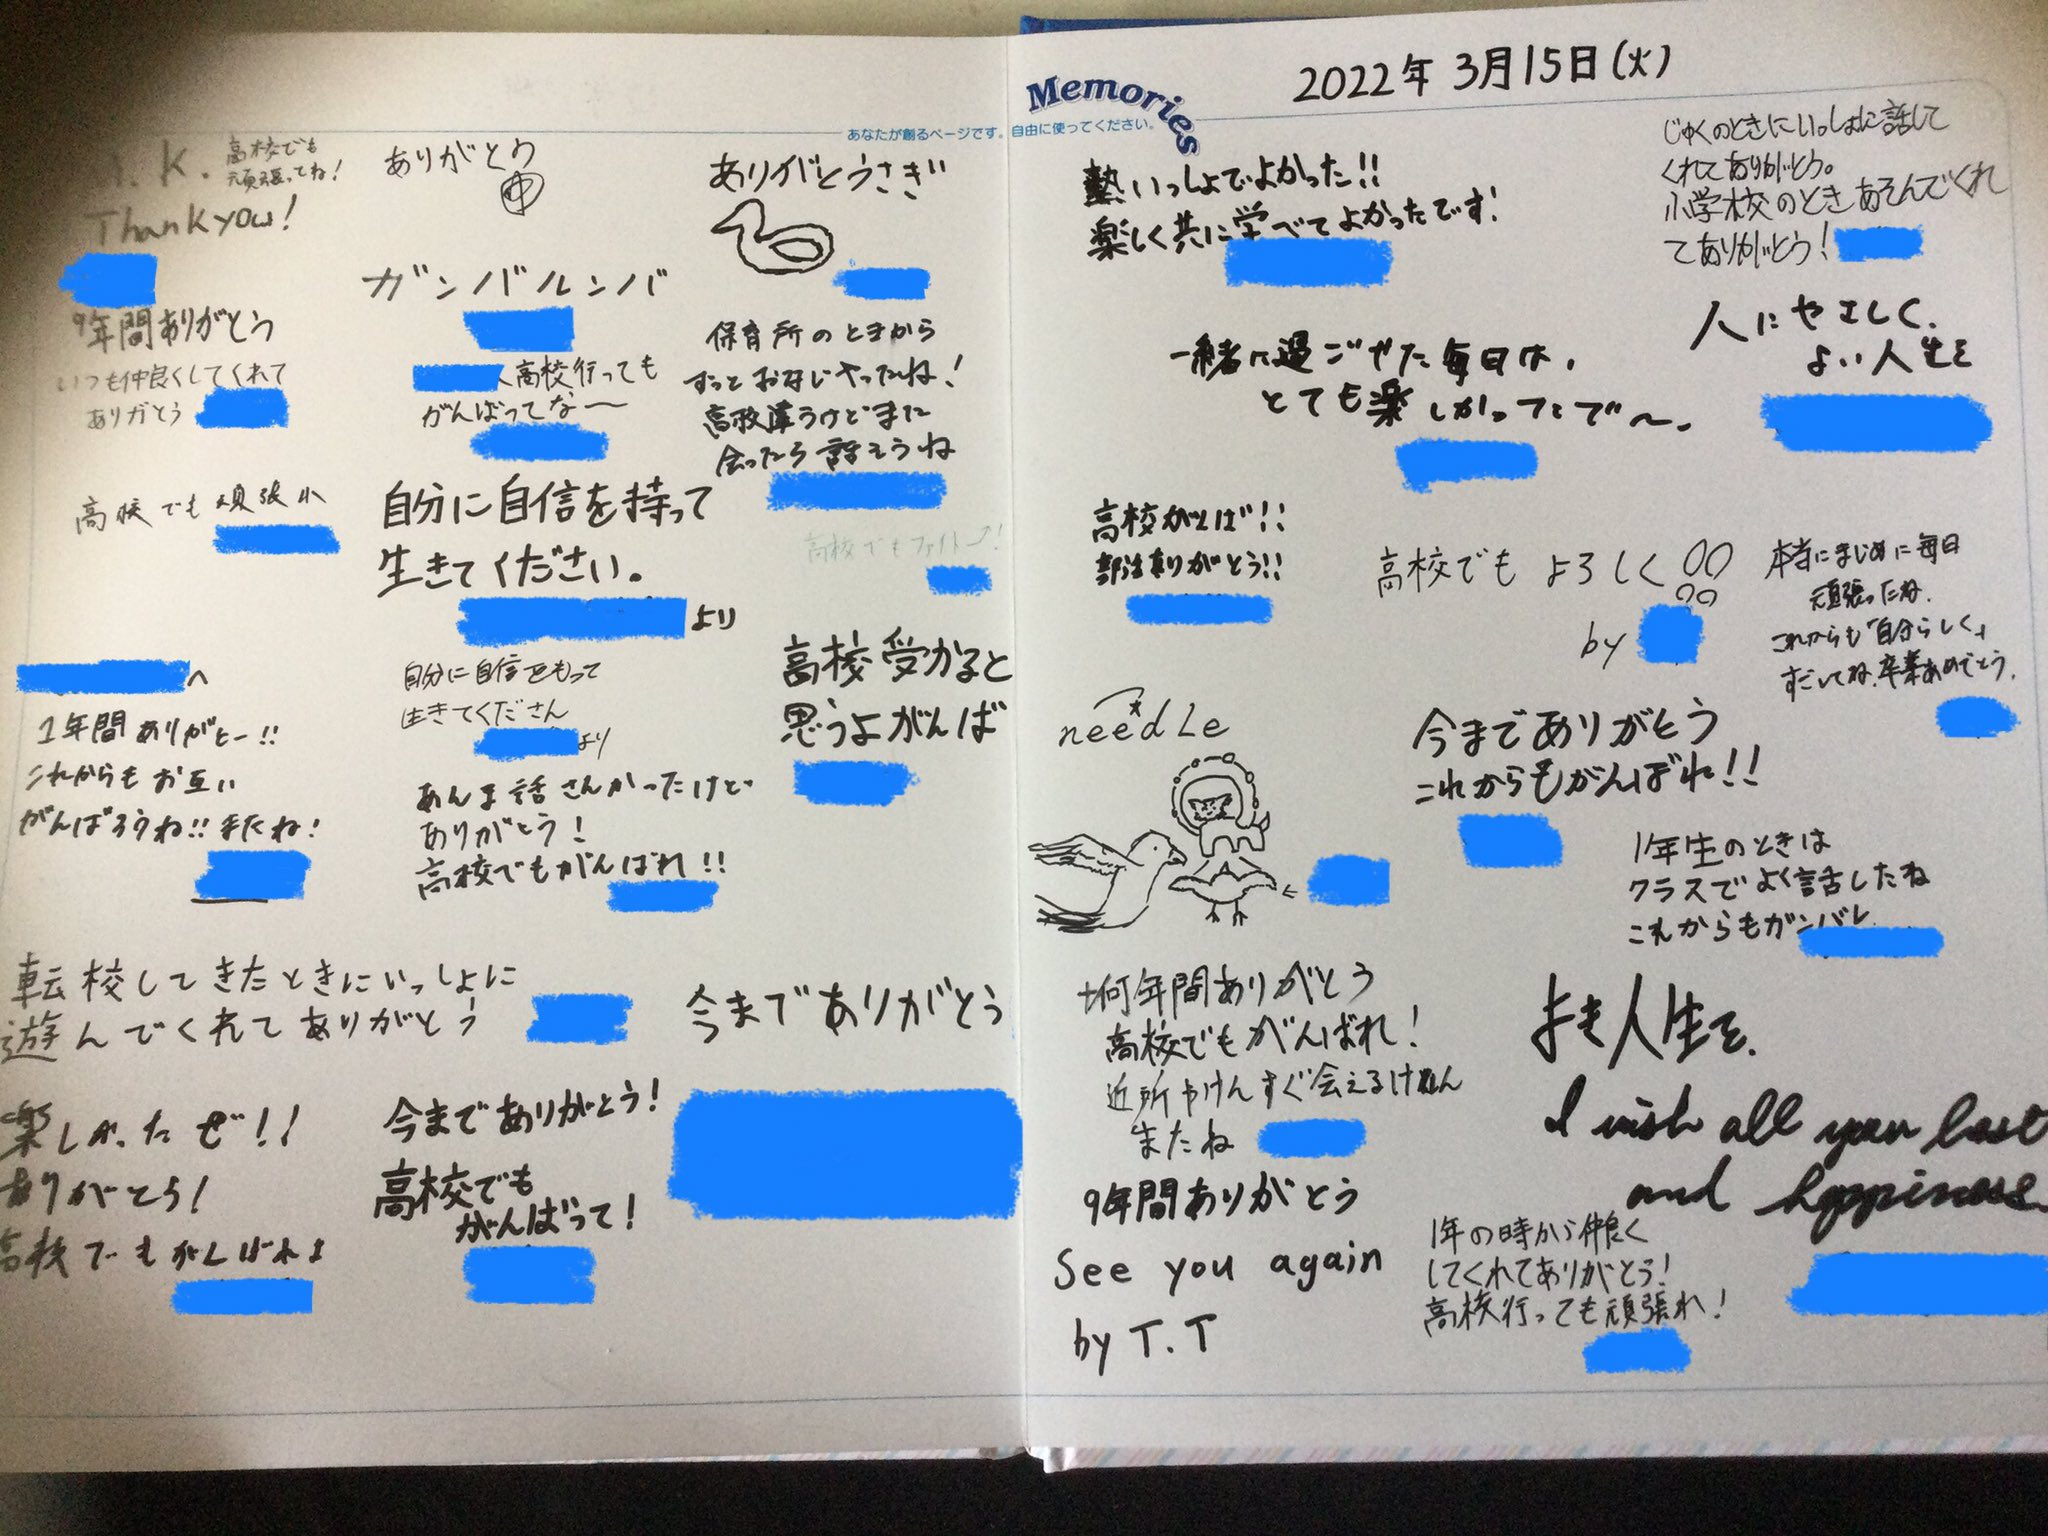 Memories
あなたが創るページです。自由に使ってください。
2022年3月15日(火)
.K.
高校でも
頑張ってね!
Thank you!
9年間ありがとう
いつも仲良くしてくれて
ありがとう
高校でも頑張れ
へ
1年間ありがとー!!
これからもお互い
がんばろうね!!またね!
転校してきたときにいっしょに
遊んでくれてありがとう
楽しかったぜ!!
ありがとう!
高校でもがんばれよ
ありがとう
ガンバルンバ
高校行っても
がんばってな〜
自分に自信を持って
生きてください。
より
自分に自信をもって
生きてくださん
より
あんま話さんかったけど
ありがとう!
高校でもがんばれ!!
今までありがとう!
高校でも
がんばって!
ありがとうさぎ
保育所のときから
ずっとおなじやったね!
高校違うけどまた
会ったら話そうね
高校でもファイトー!
高校受かると
思うよがんば
今までありがとう
塾いっしょでよかった!!
楽しく共に学べてよかったです!
じゅくのときにいっしょに話して
くれてありがとう。
小学校のときあそんでくれ
てありがとう!
一緒に過ごやた毎日は、
とても楽しかったで〜。
人にやさしく、
よい人生を
高校がんば!!
部活ありがとう!!
高校でもよろしく
by
本当にまじめに毎日
頑張ったね。
これからも「自分らしく」
すごしてね。卒業おめでとう。
needLe
今までありがとう
これからもがんばれ!!
1年生のときは
クラスでよく話したね
これからもガンバレ
何年間ありがとう
高校でもがんばれ!
近所やけんすぐ会えるけん
またね
よき人生を。
I wish all your best
and happiness
9年間ありがとう
See you again
by T.T
1年の時から仲良く
してくれてありがとう!
高校行っても頑張れ!